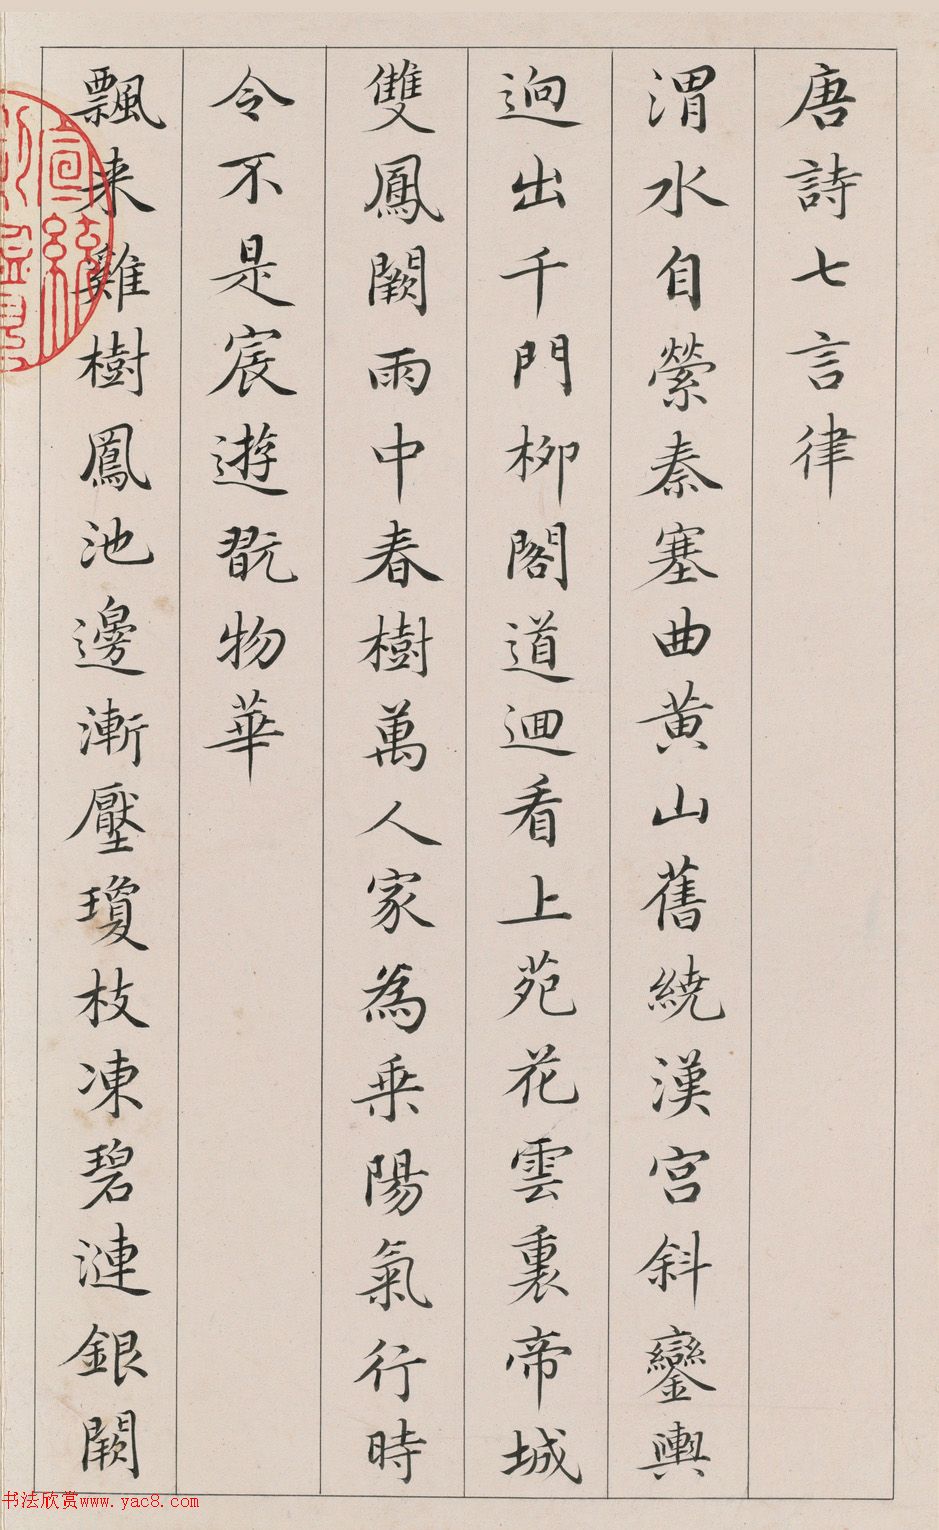 唐詩七言律
渭水自縈秦塞曲黄山舊繞漢宮斜鑾輿
逈出千門栁閣道迴看上苑花雲裏帝城
雙鳳闕雨中春樹萬人家為乗陽氣行時
令不是宸遊翫物華
飄来雞樹鳳池邊漸壓瓊枝凍碧漣銀闕
宣統
书法欣赏www.yac8.com